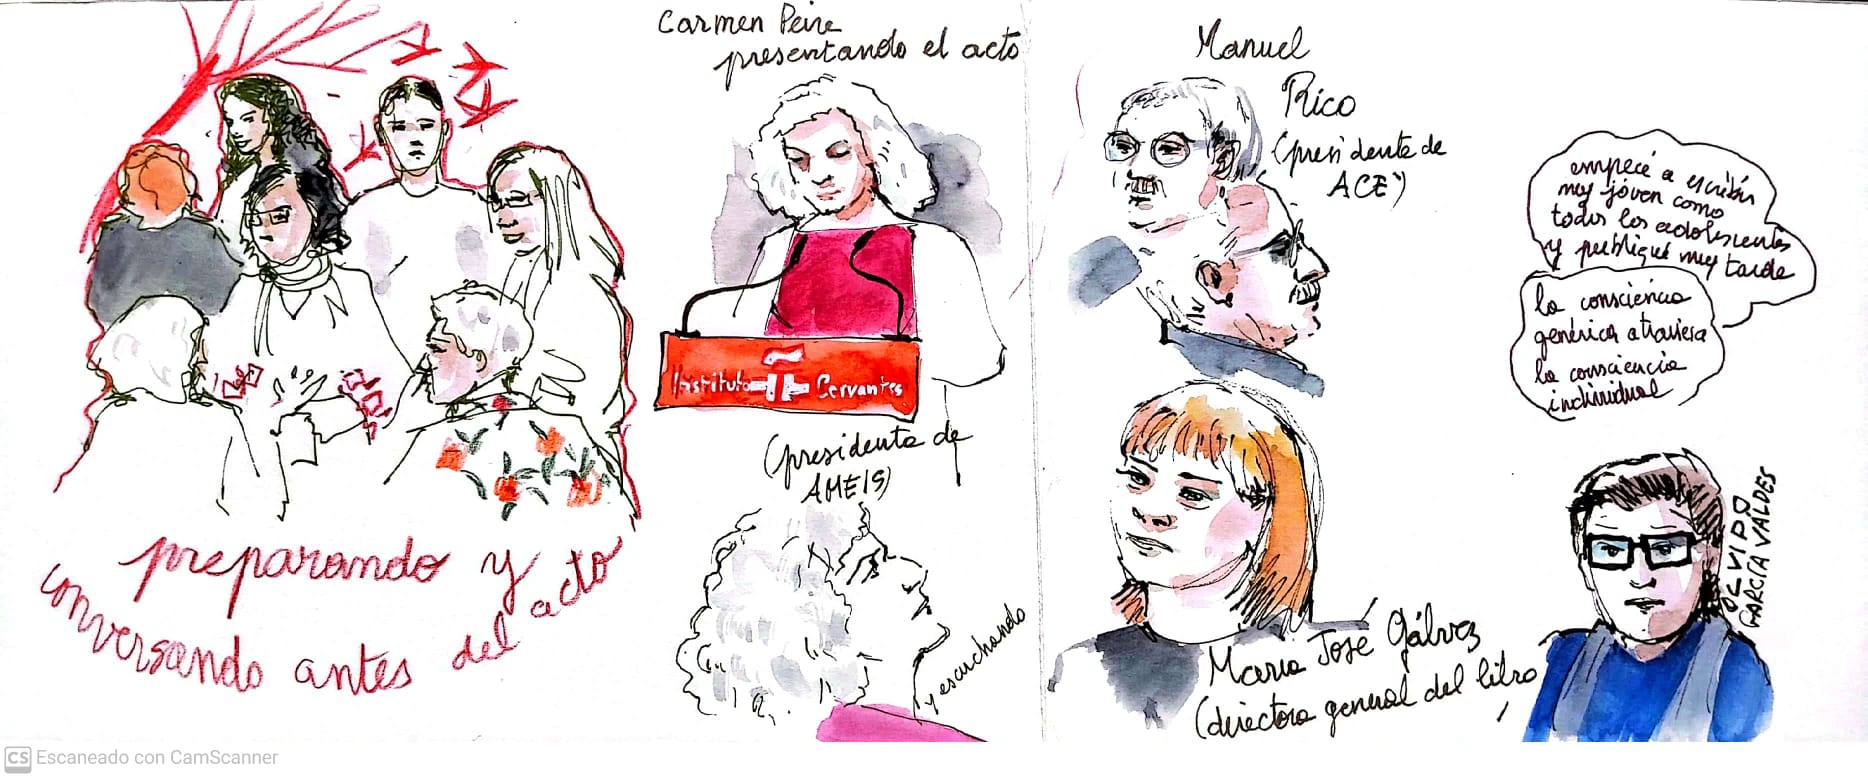 preparando y
conversando antes del acto
Carmen Peire
presentando el acto
Instituto Cervantes
(presidenta de
AMEIS)
y escuchando
Manuel
Rico
(presidente de
ACE)
empecé a escribir
muy joven como
todos los adolescentes
y publiqué muy tarde
la consciencia
genérica atraviesa
la consciencia
individual
María José Gálvez
(directora general del libro
OLVIDO
GARCÍA VALDES
CS Escaneado con CamScanner